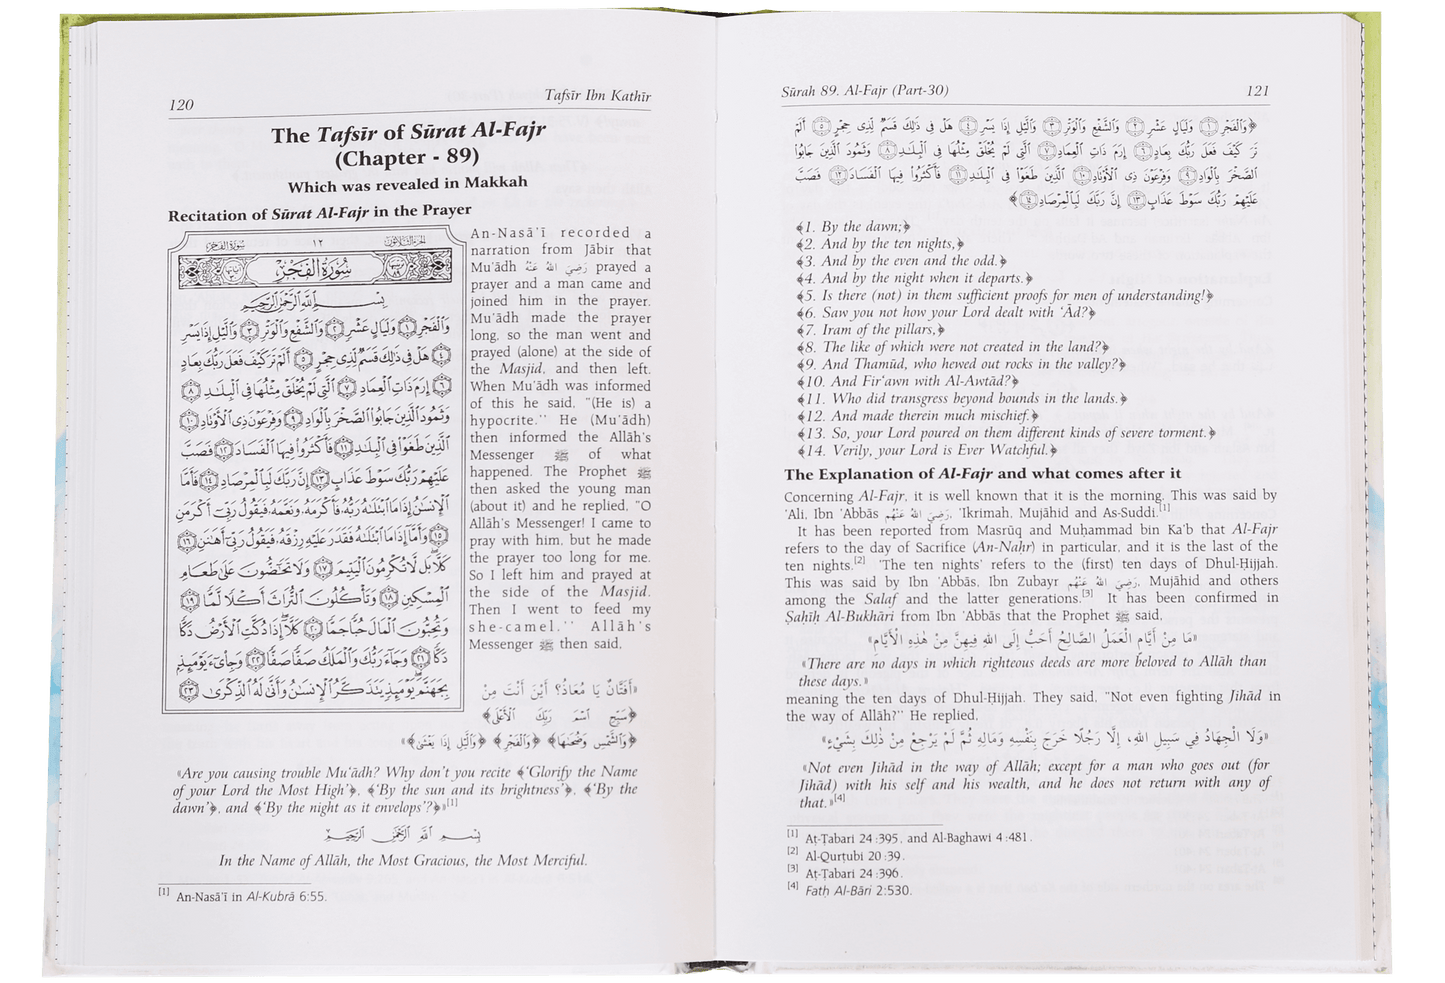 120
Tafsīr Ibn Kathīr
The Tafsīr of Sūrat Al-Fajr
(Chapter - 89)
Which was revealed in Makkah
Recitation of Sūrat Al-Fajr in the Prayer
الجزء الثلاثون
١٢
سورة الفجر
سُورَةُ الفَجْرِ
بِسْمِ اللَّهِ الرَّحْمَٰنِ الرَّحِيمِ
وَالْفَجْرِ ١ وَلَيَالٍ عَشْرٍ ٢ وَالشَّفْعِ وَالْوَتْرِ ٣ وَاللَّيْلِ إِذَا يَسْرِ
٤ هَلْ فِي ذَٰلِكَ قَسَمٌ لِّذِي حِجْرٍ ٥ أَلَمْ تَرَ كَيْفَ فَعَلَ رَبُّكَ بِعَادٍ
٦ إِرَمَ ذَاتِ الْعِمَادِ ٧ الَّتِي لَمْ يُخْلَقْ مِثْلُهَا فِي الْبِلَادِ ٨
وَثَمُودَ الَّذِينَ جَابُوا الصَّخْرَ بِالْوَادِ ٩ وَفِرْعَوْنَ ذِي الْأَوْتَادِ ١٠
الَّذِينَ طَغَوْا فِي الْبِلَادِ ١١ فَأَكْثَرُوا فِيهَا الْفَسَادَ ١٢ فَصَبَّ
عَلَيْهِمْ رَبُّكَ سَوْطَ عَذَابٍ ١٣ إِنَّ رَبَّكَ لَبِالْمِرْصَادِ ١٤ فَأَمَّا
الْإِنسَانُ إِذَا مَا ابْتَلَاهُ رَبُّهُ فَأَكْرَمَهُ وَنَعَّمَهُ فَيَقُولُ رَبِّي أَكْرَمَنِ
١٥ وَأَمَّا إِذَا مَا ابْتَلَاهُ فَقَدَرَ عَلَيْهِ رِزْقَهُ فَيَقُولُ رَبِّي أَهَانَنِ ١٦
كَلَّا بَل لَّا تُكْرِمُونَ الْيَتِيمَ ١٧ وَلَا تَحَاضُّونَ عَلَىٰ طَعَامِ
الْمِسْكِينِ ١٨ وَتَأْكُلُونَ التُّرَاثَ أَكْلًا لَّمًّا ١٩
وَتُحِبُّونَ الْمَالَ حُبًّا جَمًّا ٢٠ كَلَّا إِذَا دُكَّتِ الْأَرْضُ دَكًّا
دَكًّا ٢١ وَجَاءَ رَبُّكَ وَالْمَلَكُ صَفًّا صَفًّا ٢٢ وَجِيءَ يَوْمَئِذٍ
بِجَهَنَّمَ يَوْمَئِذٍ يَتَذَكَّرُ الْإِنسَانُ وَأَنَّىٰ لَهُ الذِّكْرَىٰ ٢٣
An-Nasā'ī recorded a
narration from Jābir that
Mu'ādh رَضِيَ اللهُ عَنْهُ prayed a
prayer and a man came and
joined him in the prayer.
Mu'ādh made the prayer
long, so the man went and
prayed (alone) at the side of
the Masjid, and then left.
When Mu'ādh was informed
of this he said, "(He is) a
hypocrite." He (Mu'ādh)
then informed the Allāh's
Messenger ﷺ of what
happened. The Prophet ﷺ
then asked the young man
(about it) and he replied, "O
Allāh's Messenger! I came to
pray with him, but he made
the prayer too long for me.
So I left him and prayed at
the side of the Masjid.
Then I went to feed my
she-camel." Allāh's
Messenger ﷺ then said,
«أَفَتَّانٌ يَا مُعَاذُ؟ أَيْنَ أَنْتَ مِنْ
﴿سَبِّحِ اسْمَ رَبِّكَ الْأَعْلَى﴾
﴿وَالشَّمْسِ وَضُحَاهَا﴾ ﴿وَالْفَجْرِ﴾ ﴿وَاللَّيْلِ إِذَا يَغْشَىٰ﴾»
«Are you causing trouble Mu'ādh? Why don't you recite ﴾'Glorify the Name
of your Lord the Most High'﴿, ﴾'By the sun and its brightness'﴿, ﴾'By the
dawn'﴿, and ﴾'By the night as it envelops'?﴿»[1]
بِسْمِ اللَّهِ الرَّحْمَٰنِ الرَّحِيمِ
In the Name of Allāh, the Most Gracious, the Most Merciful.
[1] An-Nasā'ī in Al-Kubrā 6:55.
Sūrah 89. Al-Fajr (Part-30)
121
﴿وَالْفَجْرِ ١ وَلَيَالٍ عَشْرٍ ٢ وَالشَّفْعِ وَالْوَتْرِ ٣ وَاللَّيْلِ إِذَا يَسْرِ ٤ هَلْ فِي ذَٰلِكَ قَسَمٌ لِّذِي حِجْرٍ ٥ أَلَمْ
تَرَ كَيْفَ فَعَلَ رَبُّكَ بِعَادٍ ٦ إِرَمَ ذَاتِ الْعِمَادِ ٧ الَّتِي لَمْ يُخْلَقْ مِثْلُهَا فِي الْبِلَادِ ٨ وَثَمُودَ الَّذِينَ جَابُوا
الصَّخْرَ بِالْوَادِ ٩ وَفِرْعَوْنَ ذِي الْأَوْتَادِ ١٠ الَّذِينَ طَغَوْا فِي الْبِلَادِ ١١ فَأَكْثَرُوا فِيهَا الْفَسَادَ ١٢ فَصَبَّ
عَلَيْهِمْ رَبُّكَ سَوْطَ عَذَابٍ ١٣ إِنَّ رَبَّكَ لَبِالْمِرْصَادِ ١٤﴾
﴾1. By the dawn;﴿
﴾2. And by the ten nights,﴿
﴾3. And by the even and the odd.﴿
﴾4. And by the night when it departs.﴿
﴾5. Is there (not) in them sufficient proofs for men of understanding!﴿
﴾6. Saw you not how your Lord dealt with 'Ād?﴿
﴾7. Iram of the pillars,﴿
﴾8. The like of which were not created in the land?﴿
﴾9. And Thamūd, who hewed out rocks in the valley?﴿
﴾10. And Fir'awn with Al-Awtād?﴿
﴾11. Who did transgress beyond bounds in the lands.﴿
﴾12. And made therein much mischief.﴿
﴾13. So, your Lord poured on them different kinds of severe torment.﴿
﴾14. Verily, your Lord is Ever Watchful.﴿
The Explanation of Al-Fajr and what comes after it
Concerning Al-Fajr, it is well known that it is the morning. This was said by
'Ali, Ibn 'Abbās رَضِيَ اللهُ عَنْهُم, 'Ikrimah, Mujāhid and As-Suddi.[1]
It has been reported from Masrūq and Muḥammad bin Ka'b that Al-Fajr
refers to the day of Sacrifice (An-Naḥr) in particular, and it is the last of the
ten nights.[2] 'The ten nights' refers to the (first) ten days of Dhul-Ḥijjah.
This was said by Ibn 'Abbās, Ibn Zubayr رَضِيَ اللهُ عَنْهُم, Mujāhid and others
among the Salaf and the latter generations.[3] It has been confirmed in
Ṣaḥīḥ Al-Bukhāri from Ibn 'Abbās that the Prophet ﷺ said,
«مَا مِنْ أَيَّامٍ الْعَمَلُ الصَّالِحُ أَحَبُّ إِلَى اللهِ فِيهِنَّ مِنْ هَٰذِهِ الْأَيَّامِ»
«There are no days in which righteous deeds are more beloved to Allāh than
these days.»
meaning the ten days of Dhul-Ḥijjah. They said, "Not even fighting Jihād in
the way of Allāh?" He replied,
«وَلَا الْجِهَادُ فِي سَبِيلِ اللهِ، إِلَّا رَجُلًا خَرَجَ بِنَفْسِهِ وَمَالِهِ ثُمَّ لَمْ يَرْجِعْ مِنْ ذَٰلِكَ بِشَيْءٍ»
«Not even Jihād in the way of Allāh; except for a man who goes out (for
Jihād) with his self and his wealth, and he does not return with any of
that.»[4]
[1] Aṭ-Ṭabari 24:395, and Al-Baghawi 4:481.
[2] Al-Qurṭubi 20:39.
[3] Aṭ-Ṭabari 24:396.
[4] Fatḥ Al-Bāri 2:530.